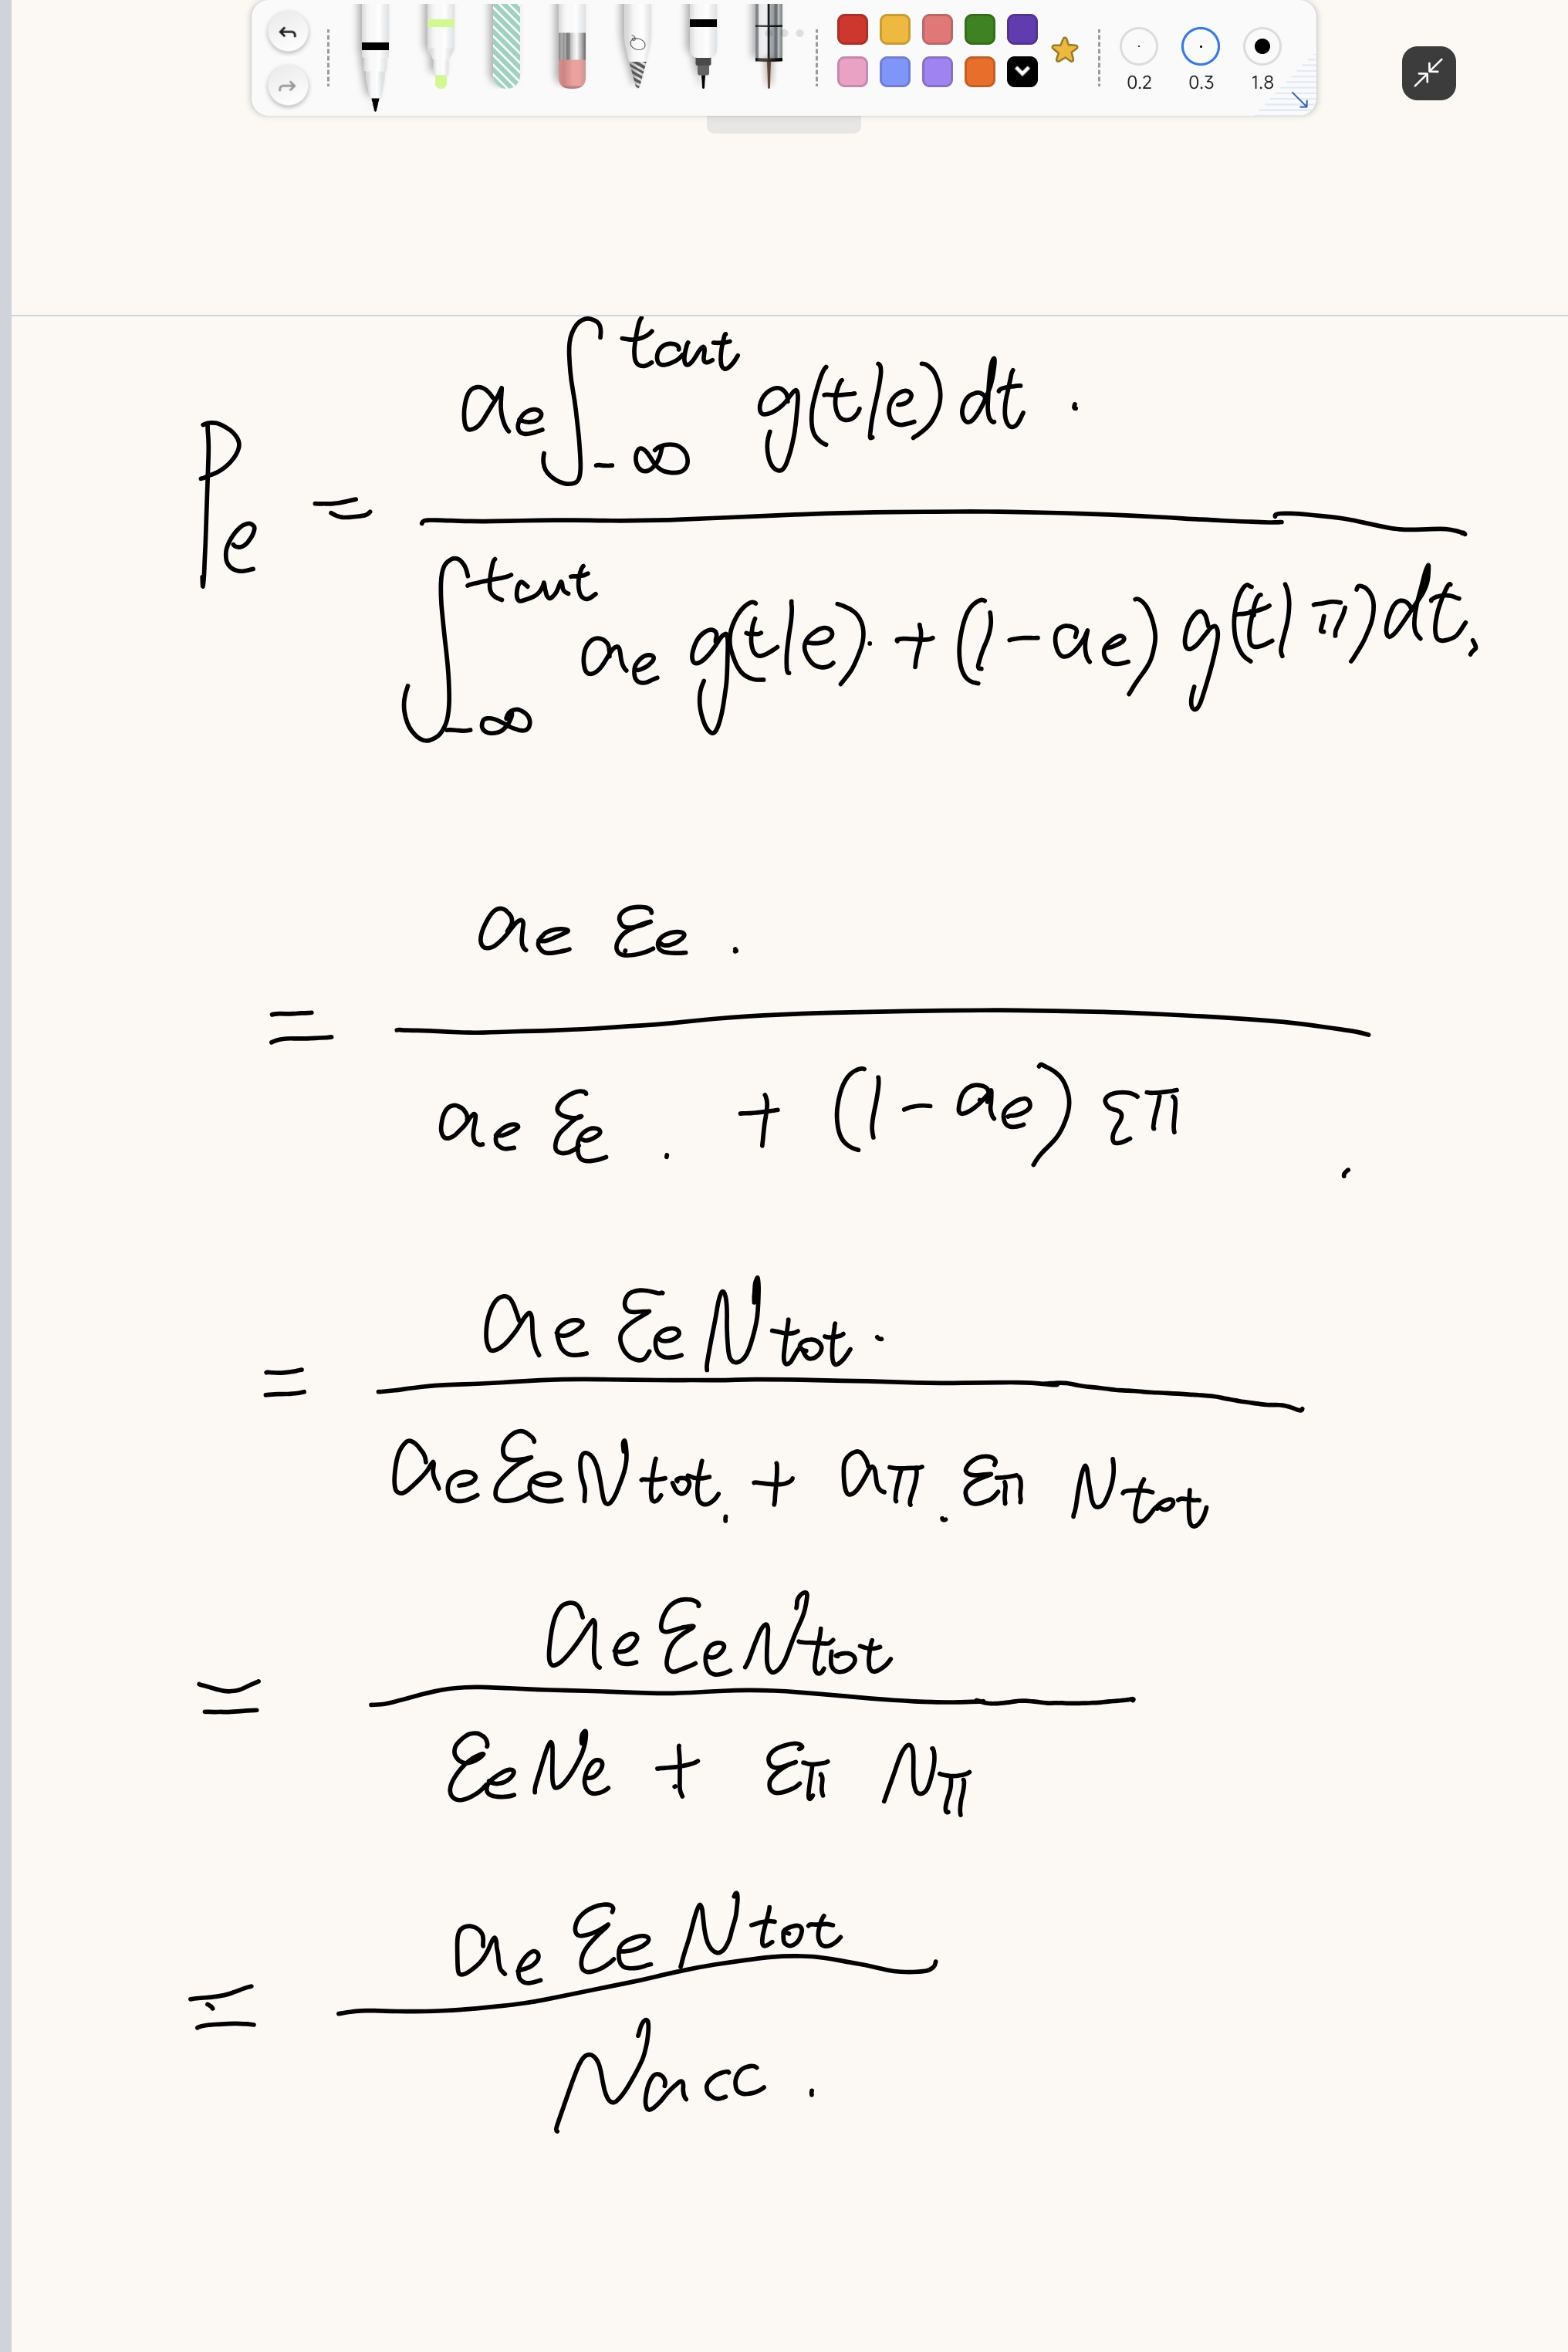 0.2 0.3 1.8
Pe = ae ∫_{-∞}^{tcut} g(t|e) dt . / ∫_{-∞}^{tcut} ae g(t|e) . + (1-ae) g(t|π) dt,
= ae εe . / ae εe . + (1-ae) επ .
= ae εe Ntot . / ae εe Ntot . + aπ . επ Ntot
= ae εe Ntot / εe Ne + επ Nπ
= ae εe Ntot / Nacc .